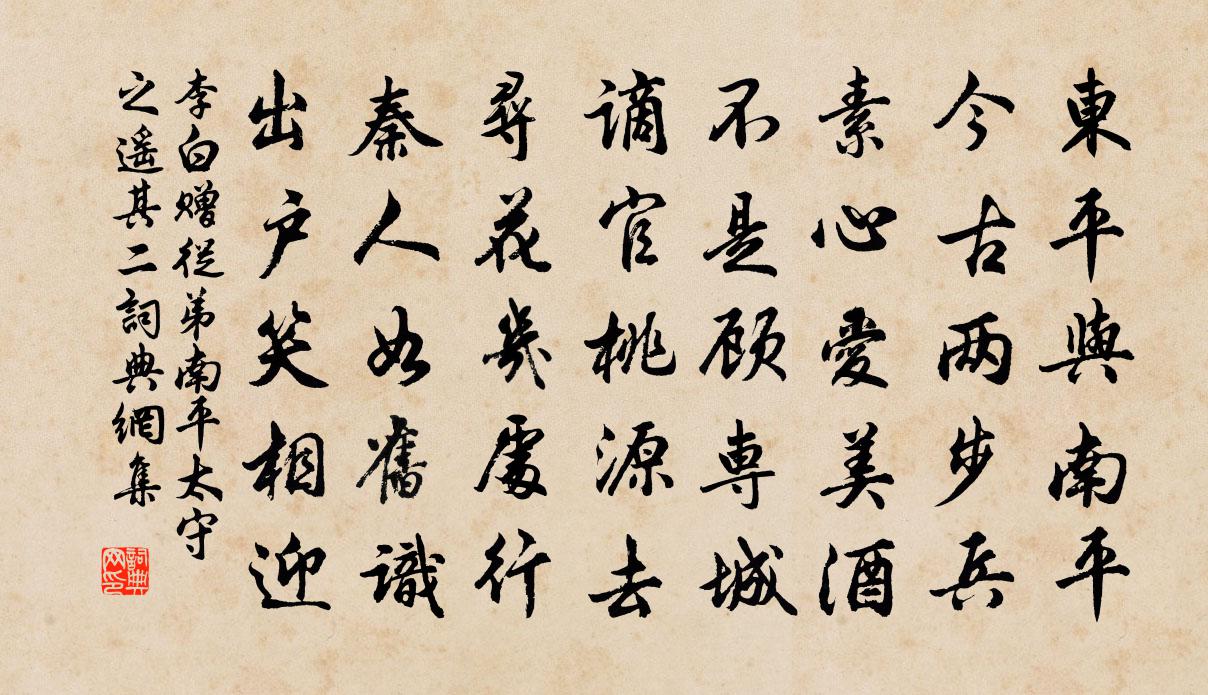 東平與南平
今古两步兵
素心愛美酒
不是顾専城
謫官桃源去
尋花幾處行
秦人如舊識
出户笑相迎
李白赠從弟南平太守
之遥其二詞典網集
詞典网印